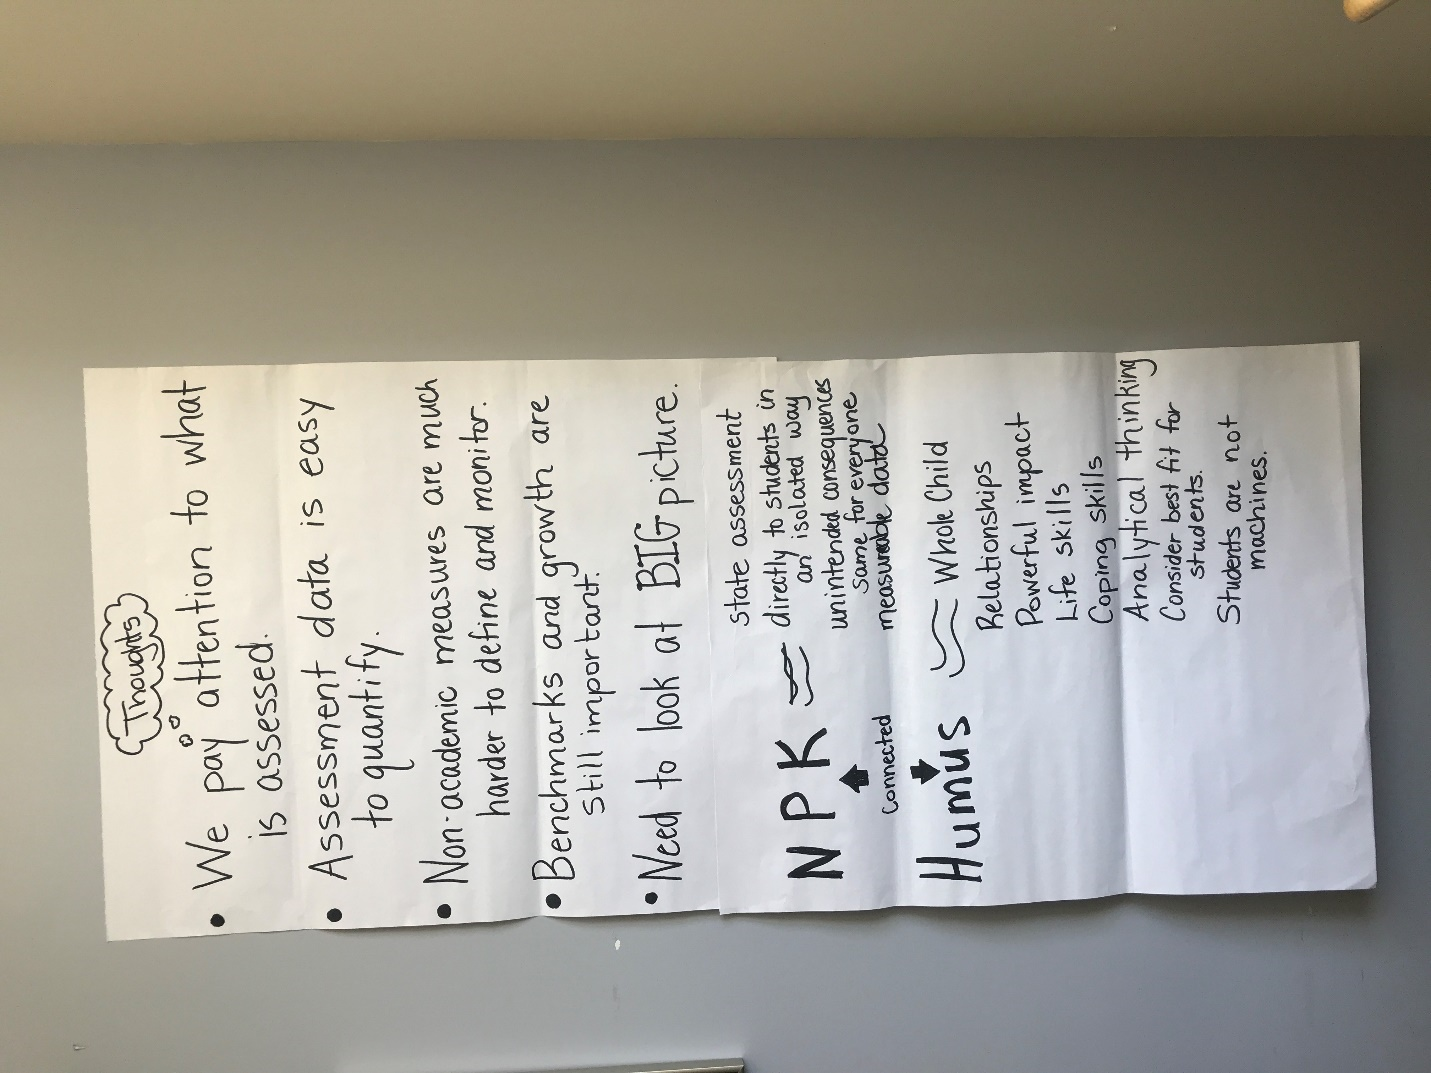 Thoughts
• We pay attention to what
is assessed.
• Assessment data is easy
to quantify.
• Non-academic measures are much
harder to define and monitor.
• Benchmarks and growth are
still important.
• Need to look at BIG picture.
State assessment
NPK directly to students in
an isolated way
unintended consequences
same for everyone
Connected measureable data
Humus Whole Child
Relationships
Powerful impact
Life skills
Coping skills
Analytical thinking
Consider best fit for
students.
Students are not
machines.